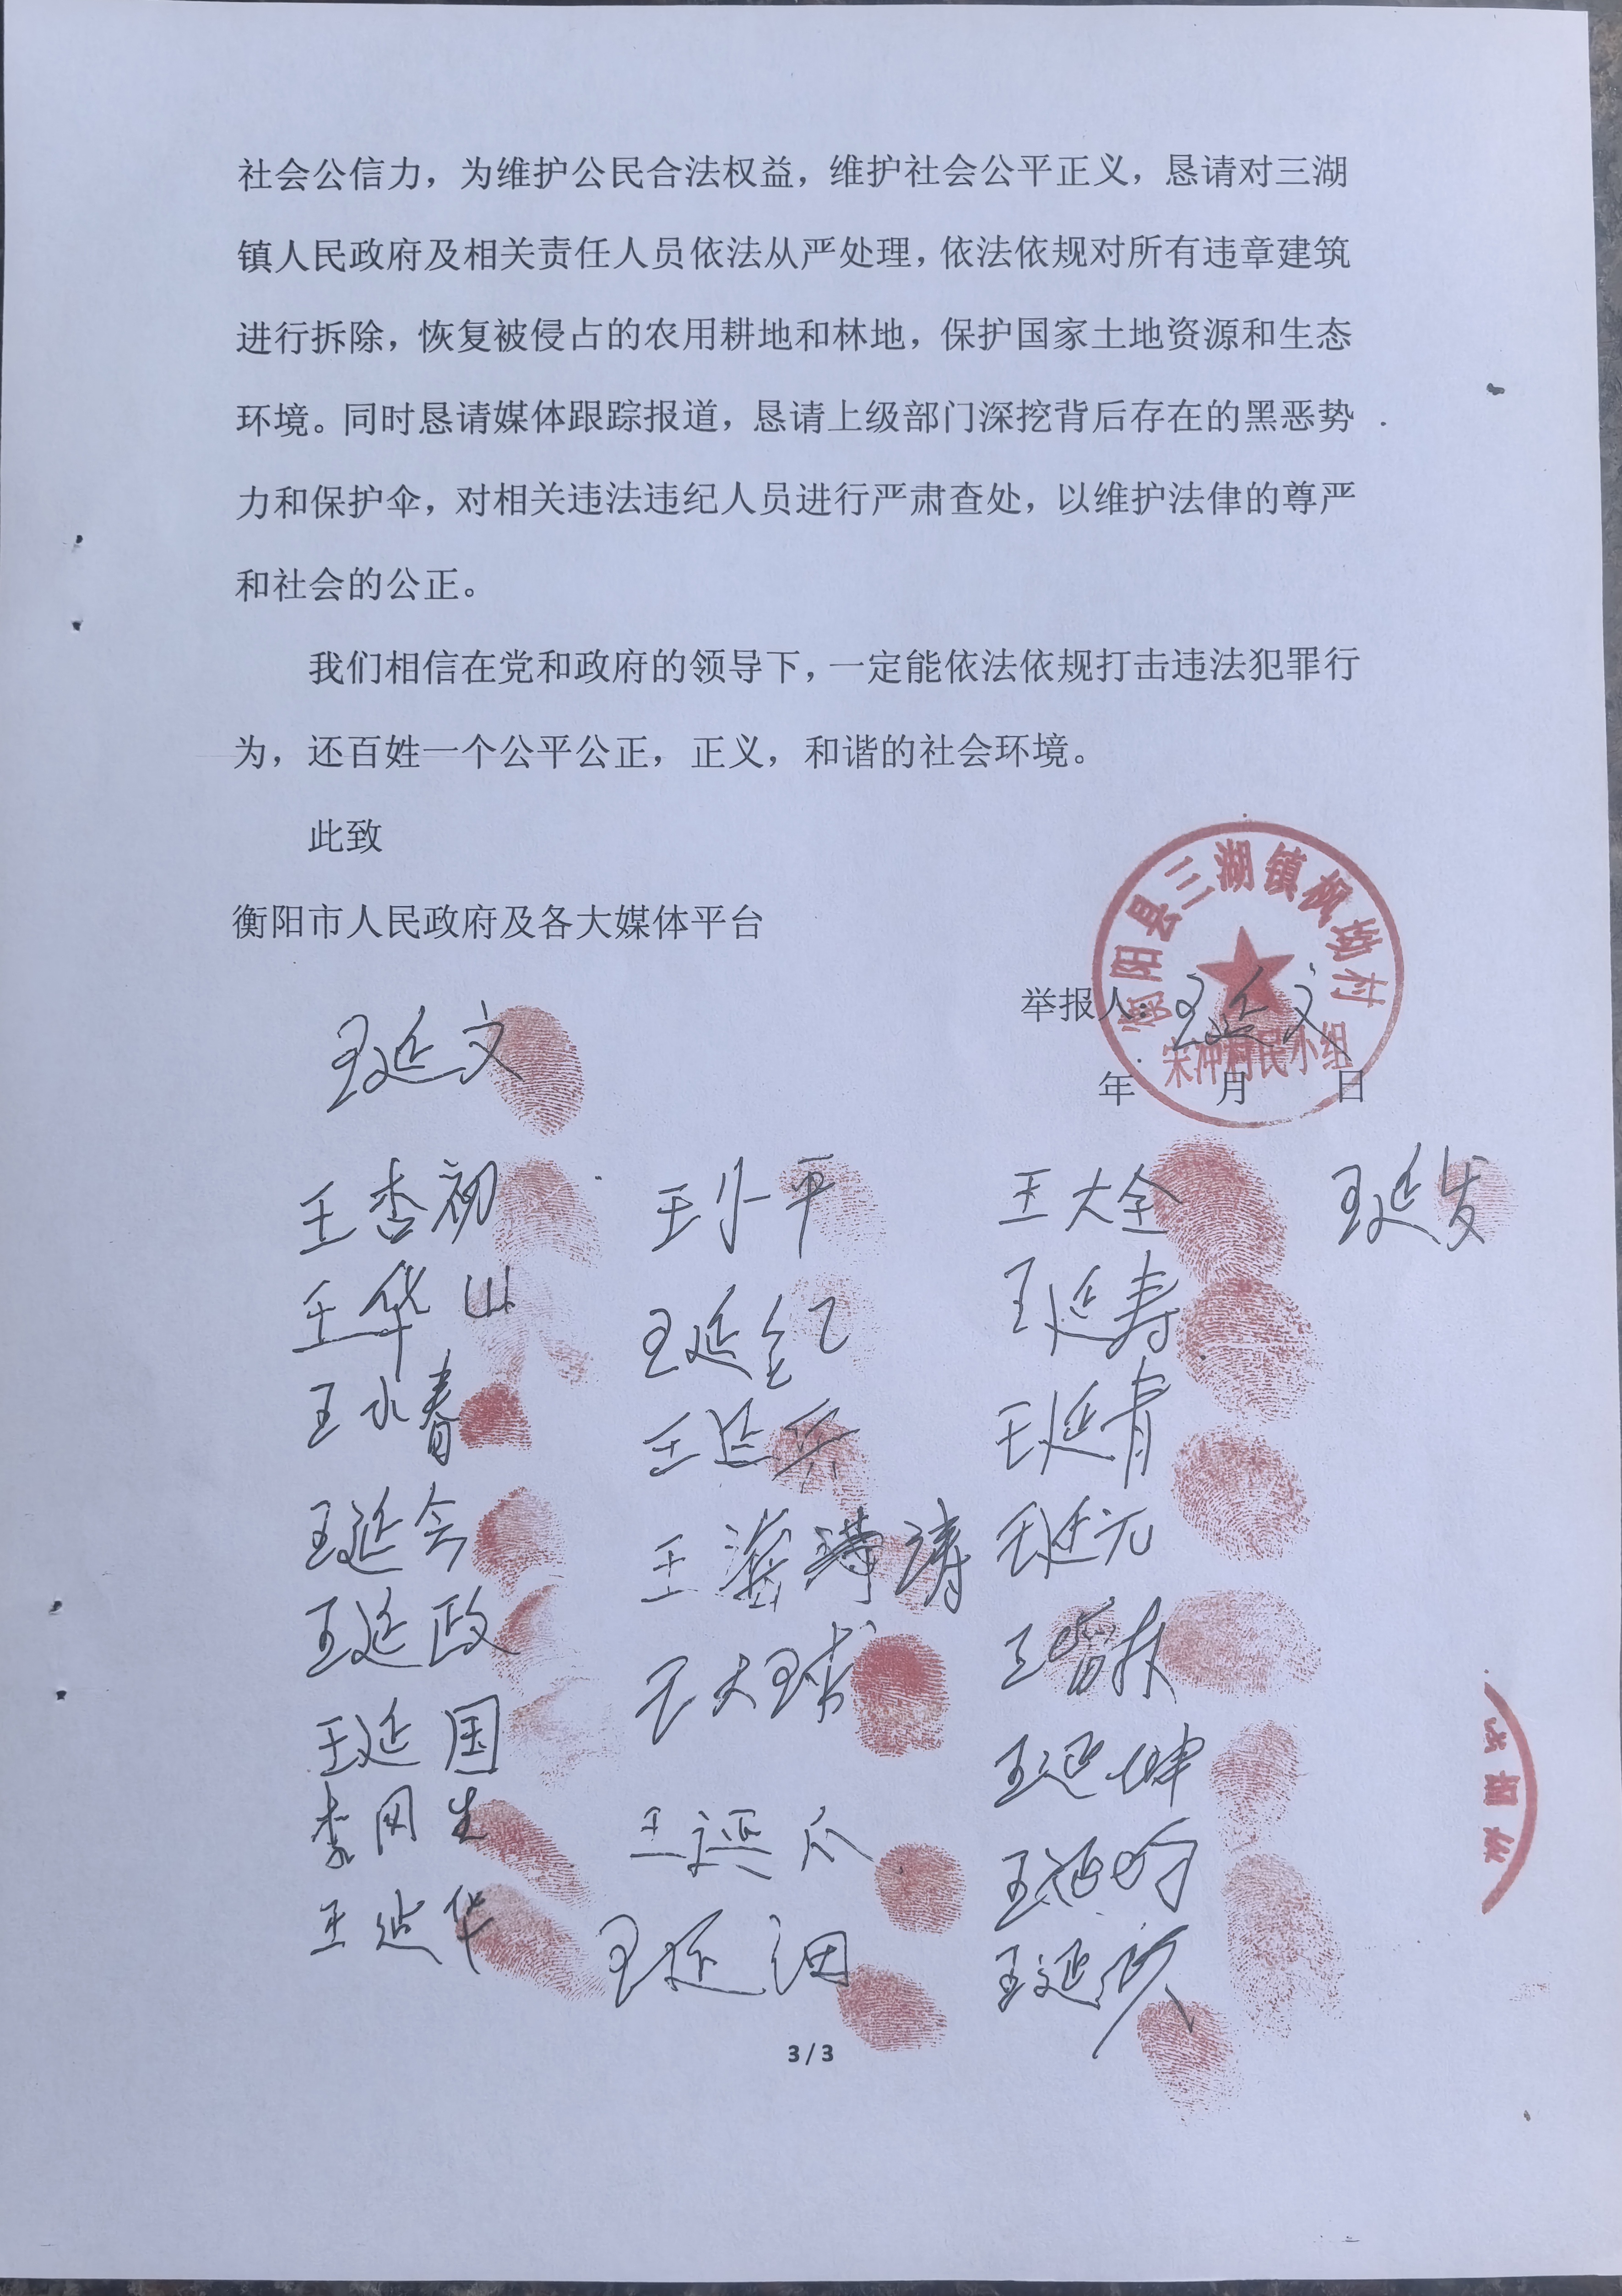 社会公信力，为维护公民合法权益，维护社会公平正义，恳请对三湖
镇人民政府及相关责任人员依法从严处理，依法依规对所有违章建筑
进行拆除，恢复被侵占的农用耕地和林地，保护国家土地资源和生态
环境。同时恳请媒体跟踪报道，恳请上级部门深挖背后存在的黑恶势
力和保护伞，对相关违法违纪人员进行严肃查处，以维护法律的尊严
和社会的公正。
我们相信在党和政府的领导下，一定能依法依规打击违法犯罪行
为，还百姓一个公平公正，正义，和谐的社会环境。
此致
衡阳市人民政府及各大媒体平台
衡阳县三湖镇枫坳村
宋冲村民小组
举报人：王延文
年 月 日
王延文
王杏初 王小平 王大全 王延发
王华山 王延 王延寿
王水春 王延 王延青
王延会 王 涛 王延元
王延政 王大球 王
王延国 王延坤
李网生 王延
王延华 王延 王延
3 / 3